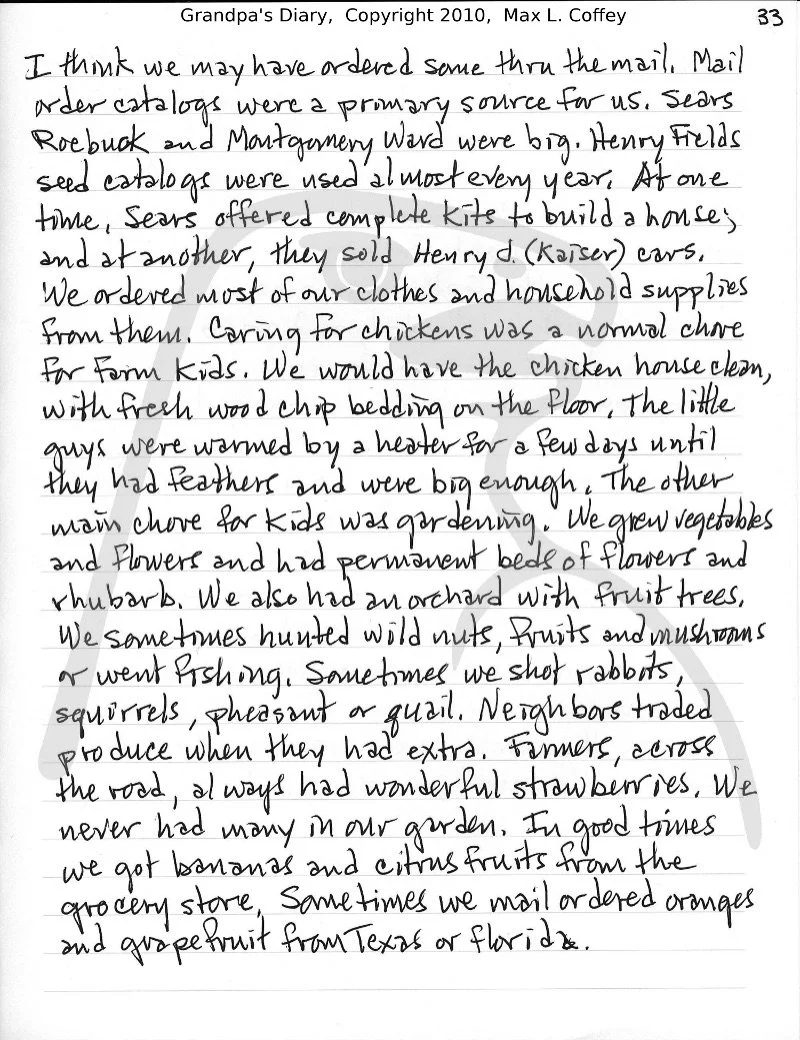 Grandpa's Diary, Copyright 2010, Max L. Coffey
33
I think we may have ordered some thru the mail. Mail
order catalogs were a primary source for us. Sears
Roebuck and Montgomery Ward were big. Henry Fields
seed catalogs were used almost every year. At one
time, Sears offered complete kits to build a house;
and at another, they sold Henry J. (Kaiser) cars.
We ordered most of our clothes and household supplies
from them. Caring for chickens was a normal chore
for farm kids. We would have the chicken house clean,
with fresh wood chip bedding on the floor. The little
guys were warmed by a heater for a few days until
they had feathers and were big enough. The other
main chore for kids was gardening. We grew vegetables
and flowers and had permanent beds of flowers and
rhubarb. We also had an orchard with fruit trees.
We sometimes hunted wild nuts, fruits and mushrooms
or went fishing. Sometimes we shot rabbits,
squirrels, pheasant or quail. Neighbors traded
produce when they had extra. Farmers, across
the road, always had wonderful strawberries. We
never had many in our garden. In good times
we got bananas and citrus fruits from the
grocery store. Sometimes we mail ordered oranges
and grapefruit from Texas or florida.